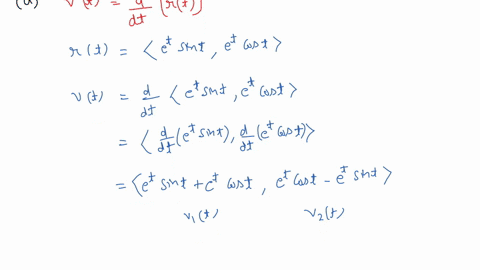 (a) v(t) = d/dt [r(t)]
r(t) = ⟨e^t sint, e^t cost⟩
v(t) = d/dt ⟨e^t sint, e^t cost⟩
= ⟨d/dt(e^t sint), d/dt(e^t cost)⟩
= ⟨e^t sint + e^t cost, e^t cost - e^t sint⟩
v₁(t) v₂(t)